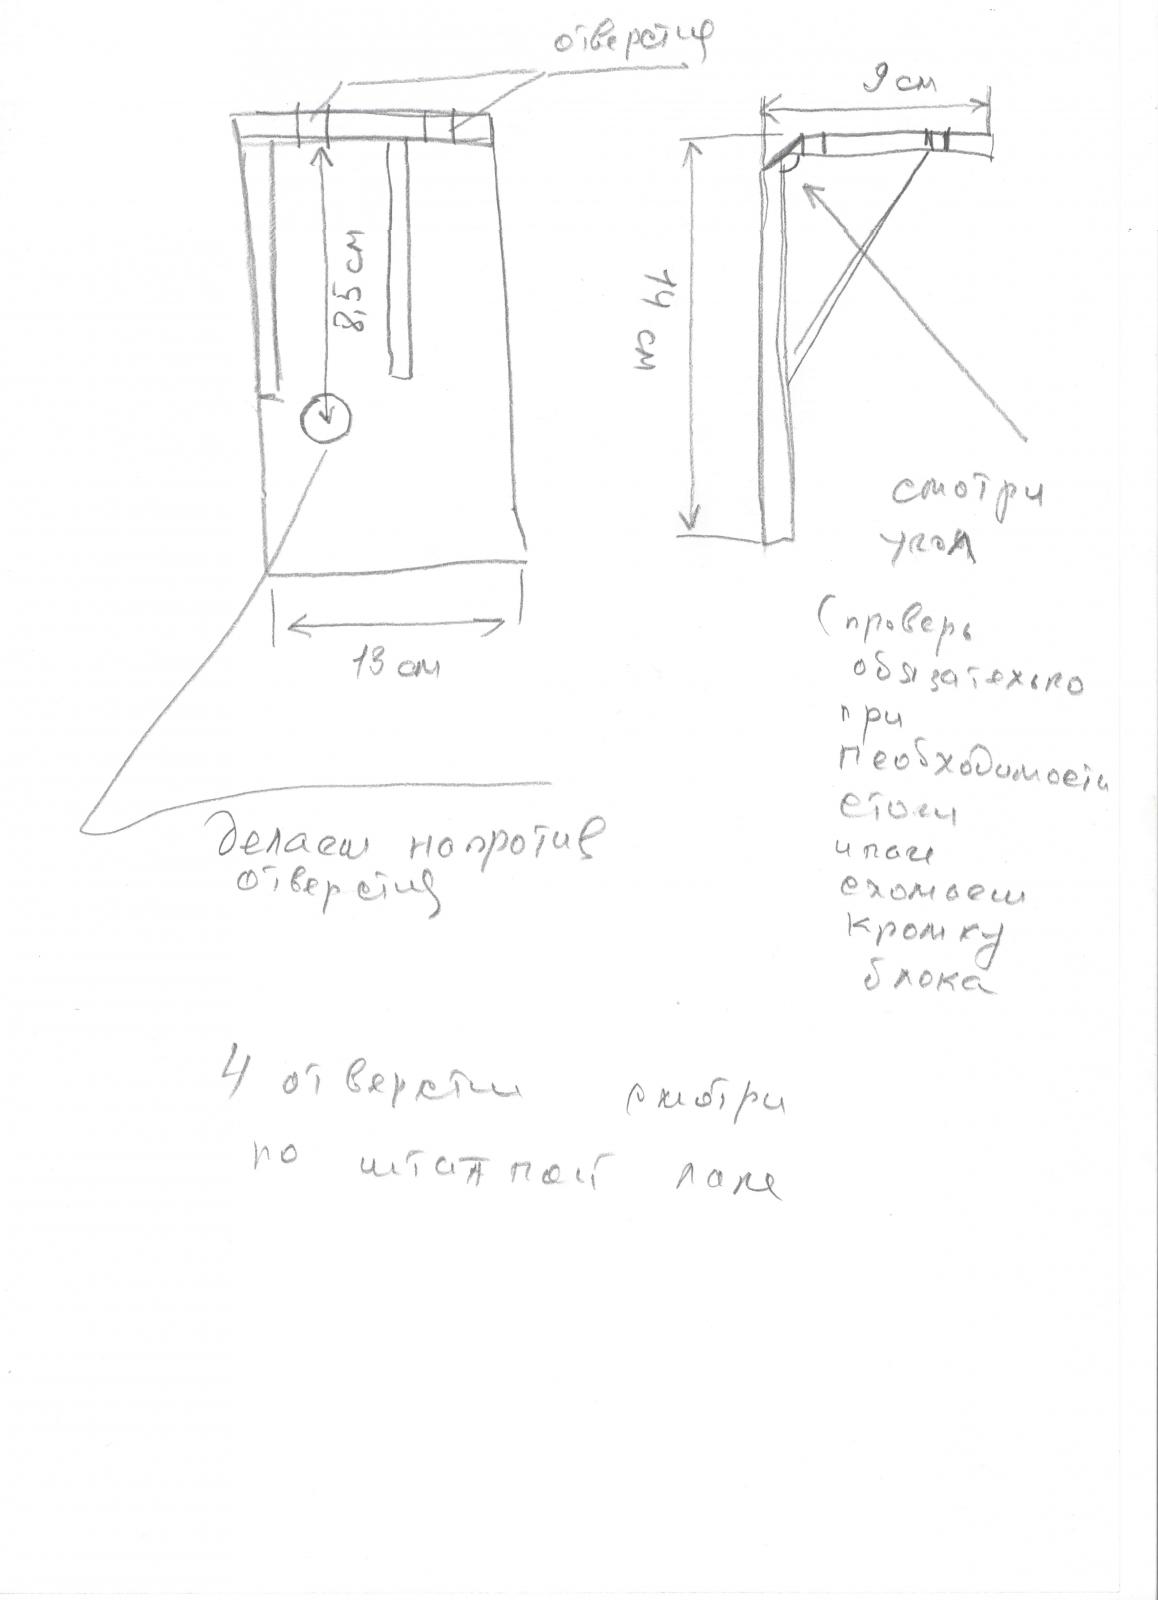 отверстия
9 см
8,5 см
14 см
смотри
угол
13 см
(проверь
обязательно
при
необходимости
сточи
иначе
сломаеш
кромку
блока
делаеш напротив
отверстия
4 отверстия смотри
по штатной лапе